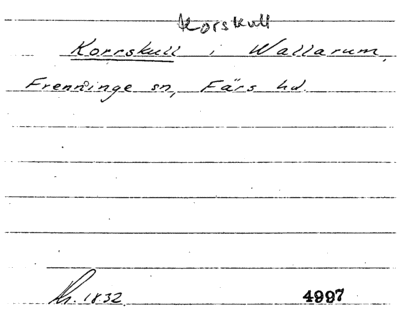 Korskull
Korrskull i Wallarum,
Frenninge sn, Färs hd.
Kr. 1832 4997